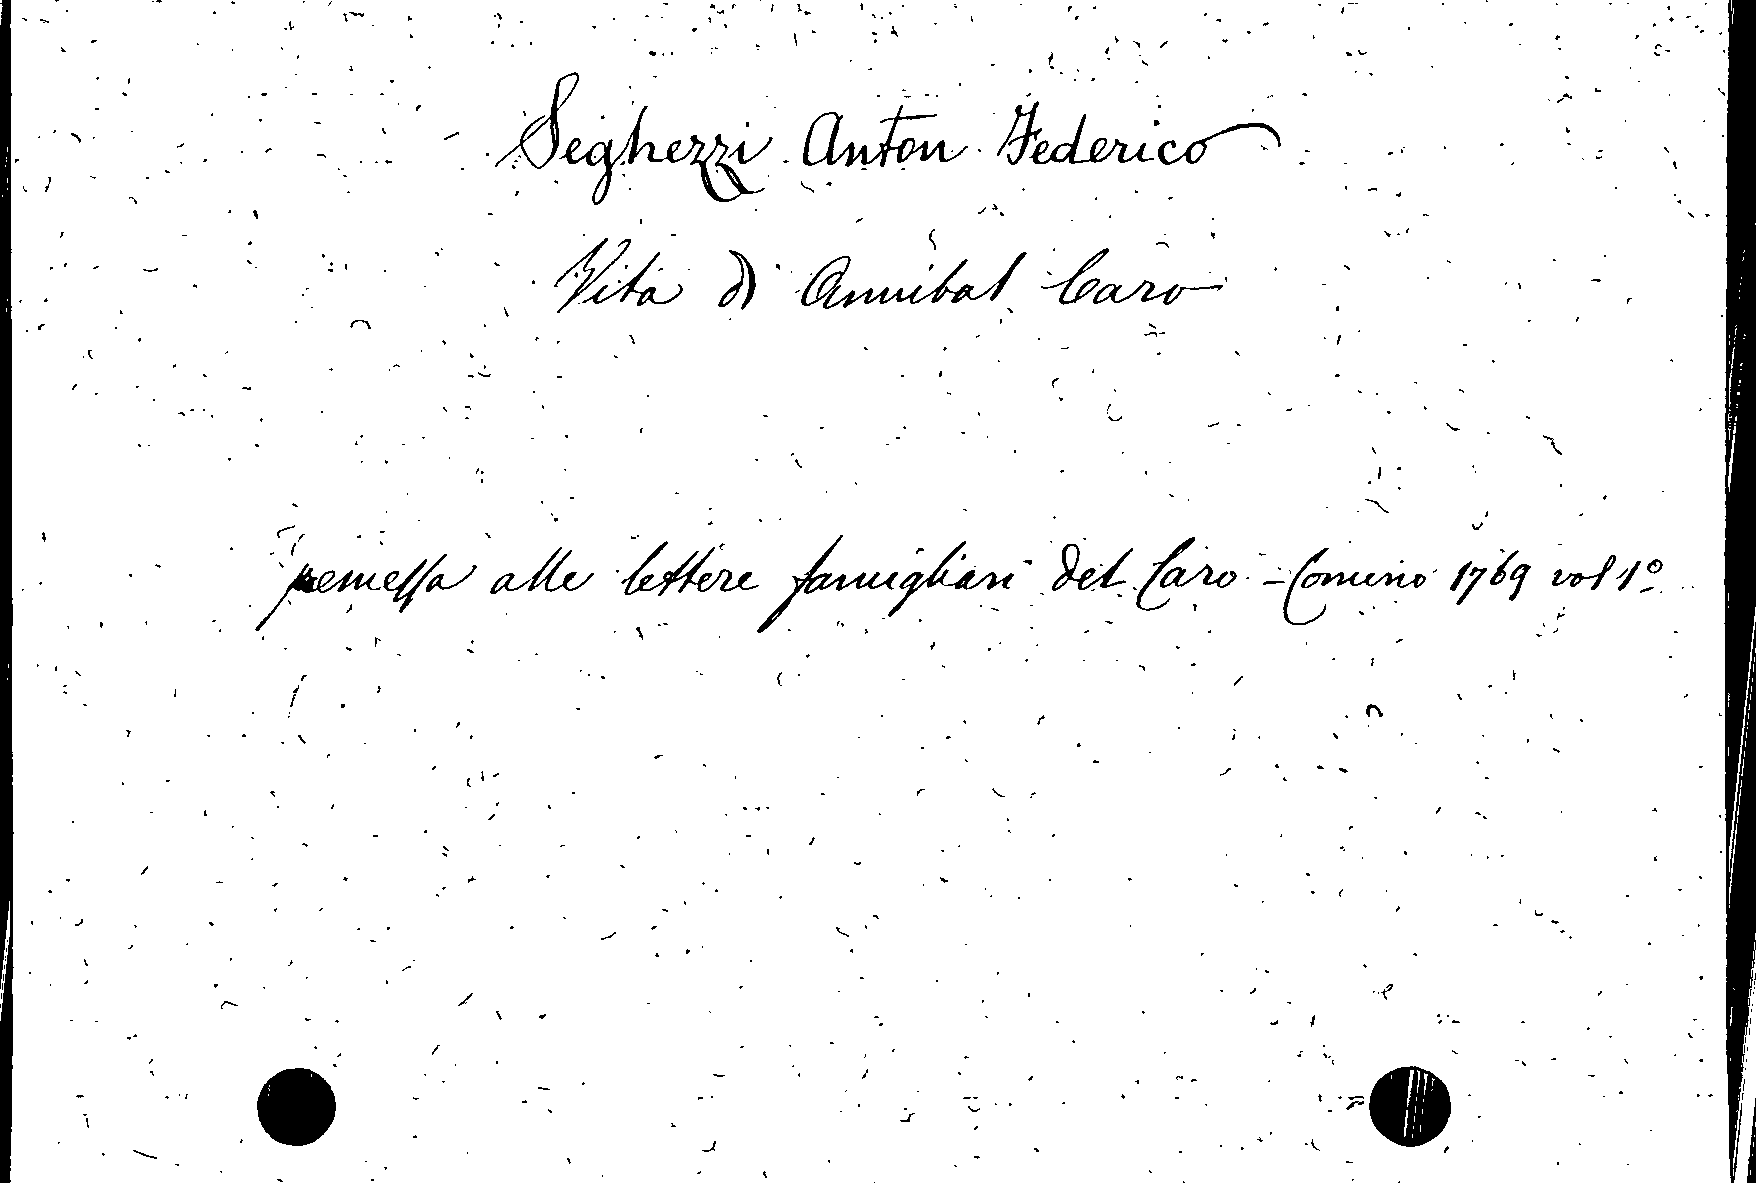 Seghezzi Anton Federico
Vita di Annibal Caro
premessa alle lettere famigliari del Caro - Comino 1769 vol 1º